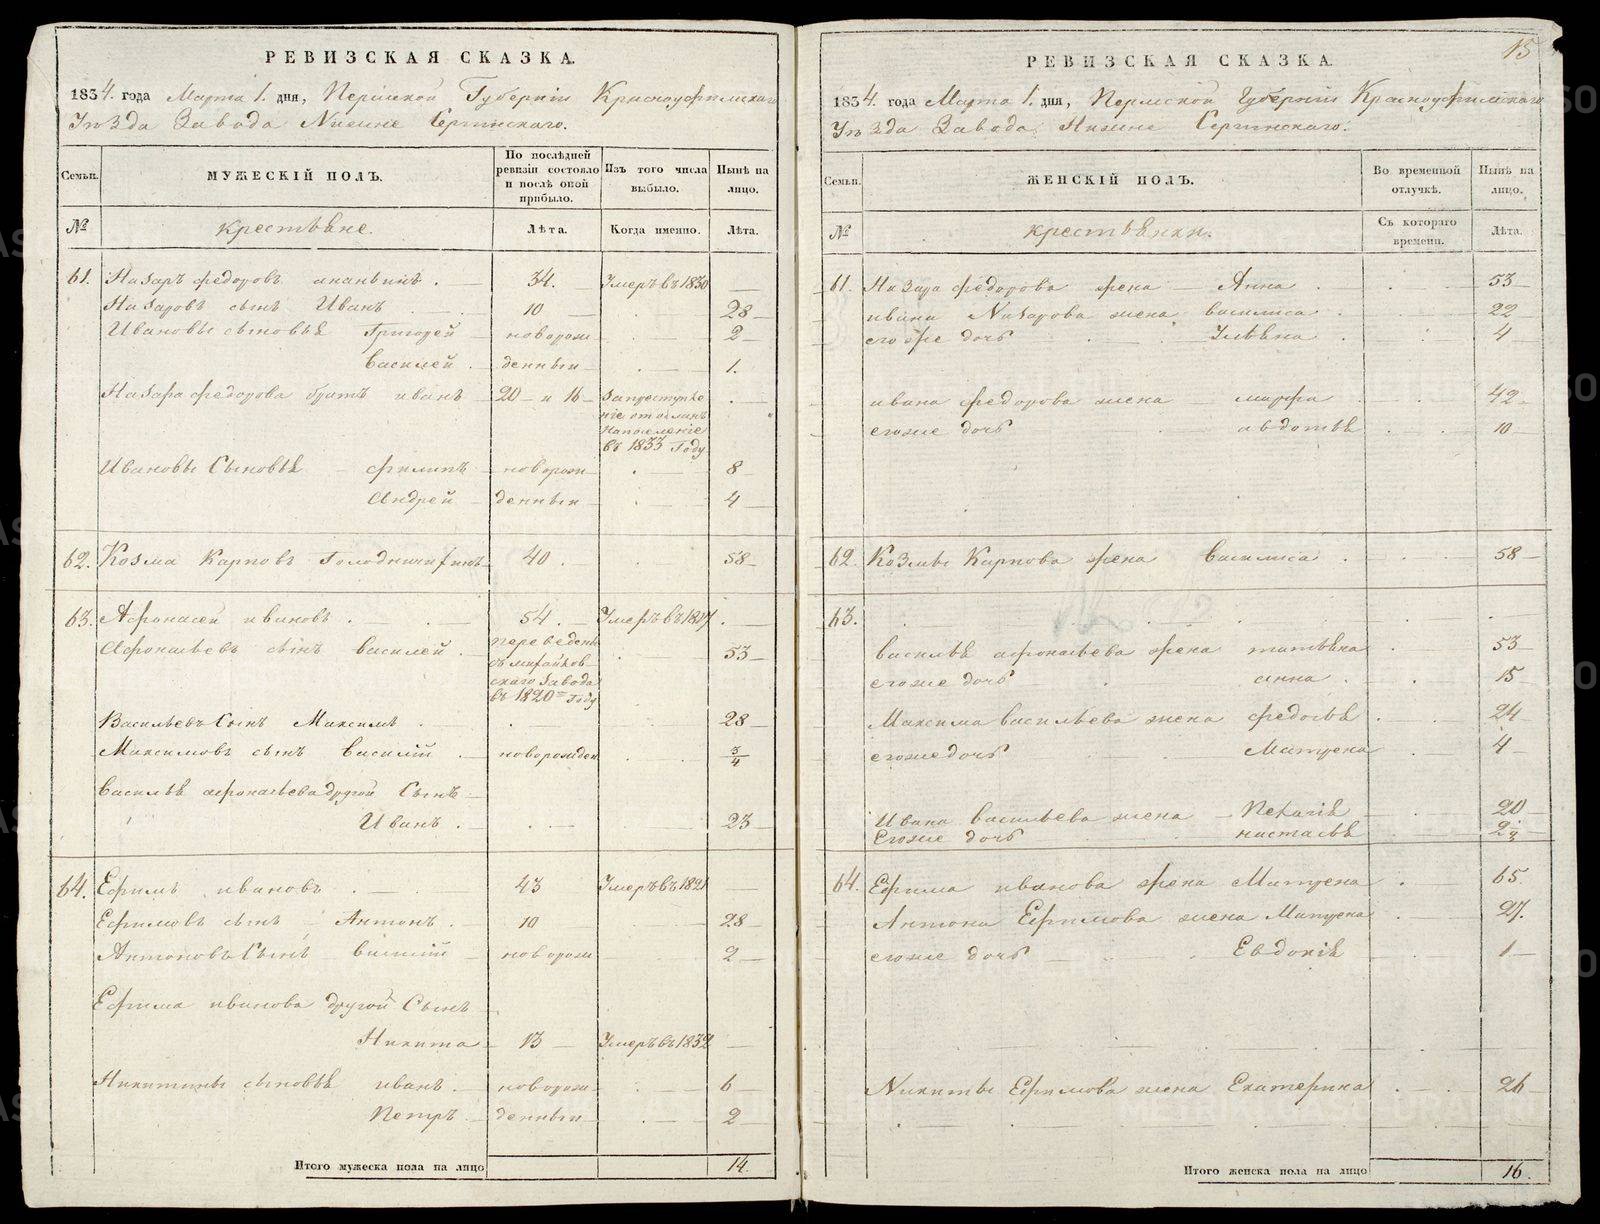 РЕВИЗСКАЯ СКАЗКА.
1834. года Марта 1. дня, Пермской Губернiи Красноуфимскаго
Уѣзда Завода Нижне Сергинскаго.
Семьи. МУЖЕСКІЙ ПОЛЪ. По послѣдней ревизіи состояло и послѣ оной прибыло. Изъ того числа выбыло. Нынѣ на лицо.
№ крестьяне. Лѣта. Когда именно. Лѣта.
61. Назаръ федоровъ 34. Умеръ въ 1830
Назаровъ сынъ Иванъ 10 28
Ивановы сыновья Григорей новорож 2
Василей денныи 1.
Назара федорова братъ иванъ 20 и 16
на поселенiе
въ 1833 Году
Ивановы Сыновья филипъ новорож 8
Андрей денныи 4
62. Козма Карповъ 40. 58
63. Афонасей ивановъ 54. Умеръ въ 1827
Афонасьевъ сынъ Василей переведенъ 53
съ михайлов
скаго завода
въ 1820 Году
Васильевъ Сынъ Максимъ 28
Максимовъ сынъ Василiй новорожден 3/4
Василья афонасьева другой Сынъ
Иванъ. 23
64. Ефимъ ивановъ 43 Умеръ въ 1821
Ефимовъ сынъ Антонъ. 10 28
Антоновъ Сынъ василiй новорож 2
Ефима иванова другой Сынъ
Никита 13 Умеръ въ 1832
Никитины сыновья иванъ. новорож 6
Петръ. денныи 2
Итого мужеска пола на лицо 14.
15
РЕВИЗСКАЯ СКАЗКА.
1834. года Марта 1. дня, Пермской Губернiи Красноуфимскаго
Уѣзда Завода Нижне Сергинскаго.
Семьи. ЖЕНСКІЙ ПОЛЪ. Во временной отлучкѣ. Нынѣ на лицо.
№ крестьянки. Съ котораго времени. Лѣта.
61. Назара федорова жена Анна 53
ивана Назарова жена василиса 22
его же дочь Ульяна 4
ивана федорова жена марфа 42
его же дочь авдотья 10
62. Козмы Карпова жена Василиса 58
63.
василья афонасьева жена татьяна 53
его же дочь анна 15
Максима васильева жена федосья 24
его же дочь Матрена 4
Ивана васильева жена Пелагiя 20
Его же дочь настасья
64. Ефима иванова жена Матрена 65
Антона Ефимова жена Матрена 27.
его же дочь Евдокiя 1
Никиты Ефимова жена Екатерина 26
Итого женска пола на лицо 16.